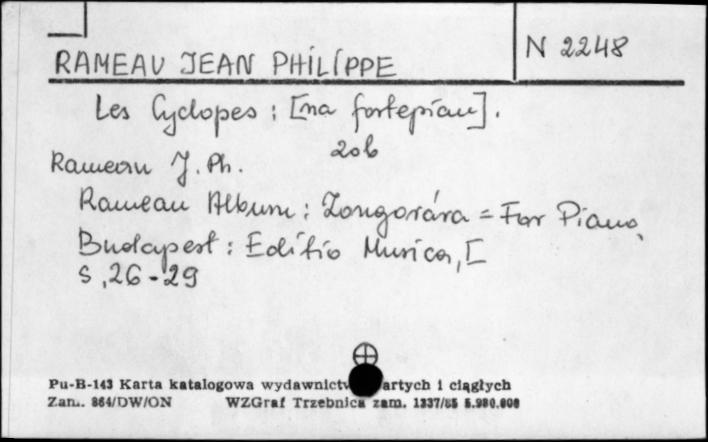 N 2248
RAMEAU JEAN PHILIPPE
Les Cyclopes : [na fortepian].
zob
Rameau J. Ph.
Rameau Album : Zongorára = For Piano,
Budapest : Editio Musica, [
S, 26-29
Pu-B-143 Karta katalogowa wydawnictw artych i ciągłych
Zam. 864/DW/ON WZGraf Trzebnica zam. 1337/85 5.980.000